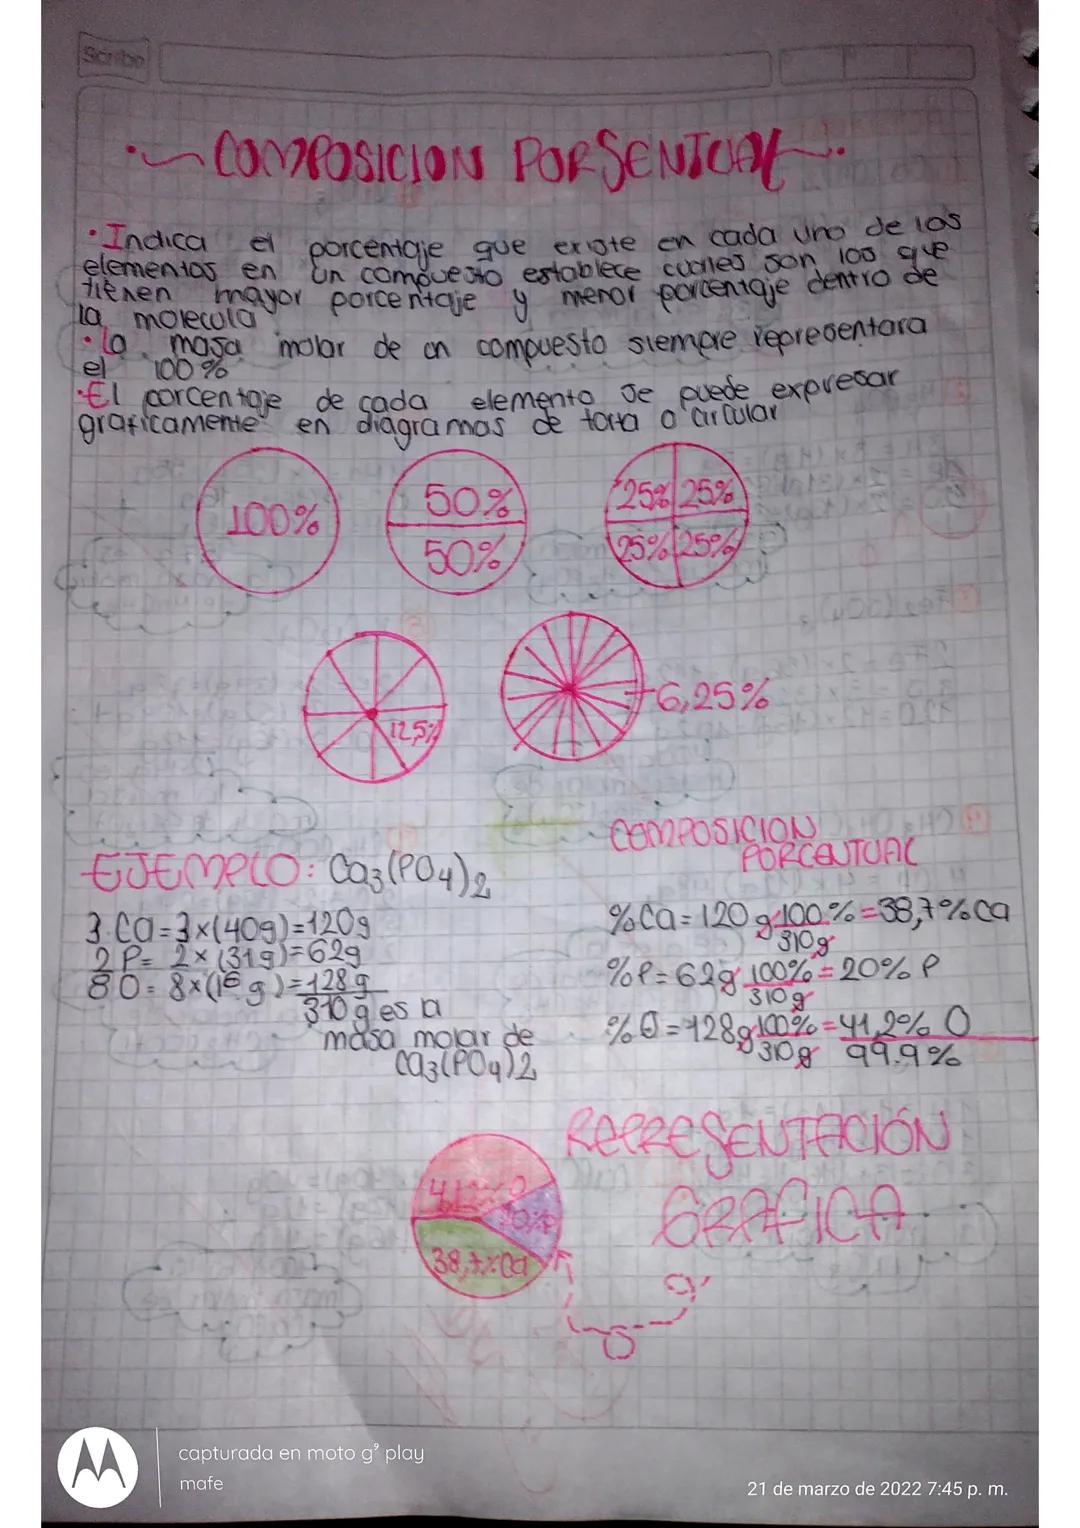 Scribe
COMPOSICION PORSENTUAL
• Indica el porcentaje que existe en cada uno de los
elementos en un compuesto establece cuales son los que
tienen mayor porcentaje y menor porcentaje dentro de
la molecula
• la masa molar de un compuesto siempre representara
el 100%
• El porcentaje de cada elemento se puede expresar
graficamente en diagramas de torta o circular
100%
50%
50%
25% 25%
25% 25%
12,5%
6,25%
EJEMPLO: Ca3(PO4)2
3 Ca = 3x(40g)=120g
2 P = 2x(31g)=62g
8 O = 8x(16g)=128g
310 g es la
masa molar de
Ca3(PO4)2
COMPOSICION
PORCENTUAL
%Ca = 120 g 100% = 38,7% Ca
310g
%P = 62g 100% = 20% P
310g
%O = 128g 100% = 41,2% O
310g 99.9%
REPRESENTACIÓN
GRAFICA
38,7% Ca
capturada en moto g⁹ play
mafe
21 de marzo de 2022 7:45 p. m.